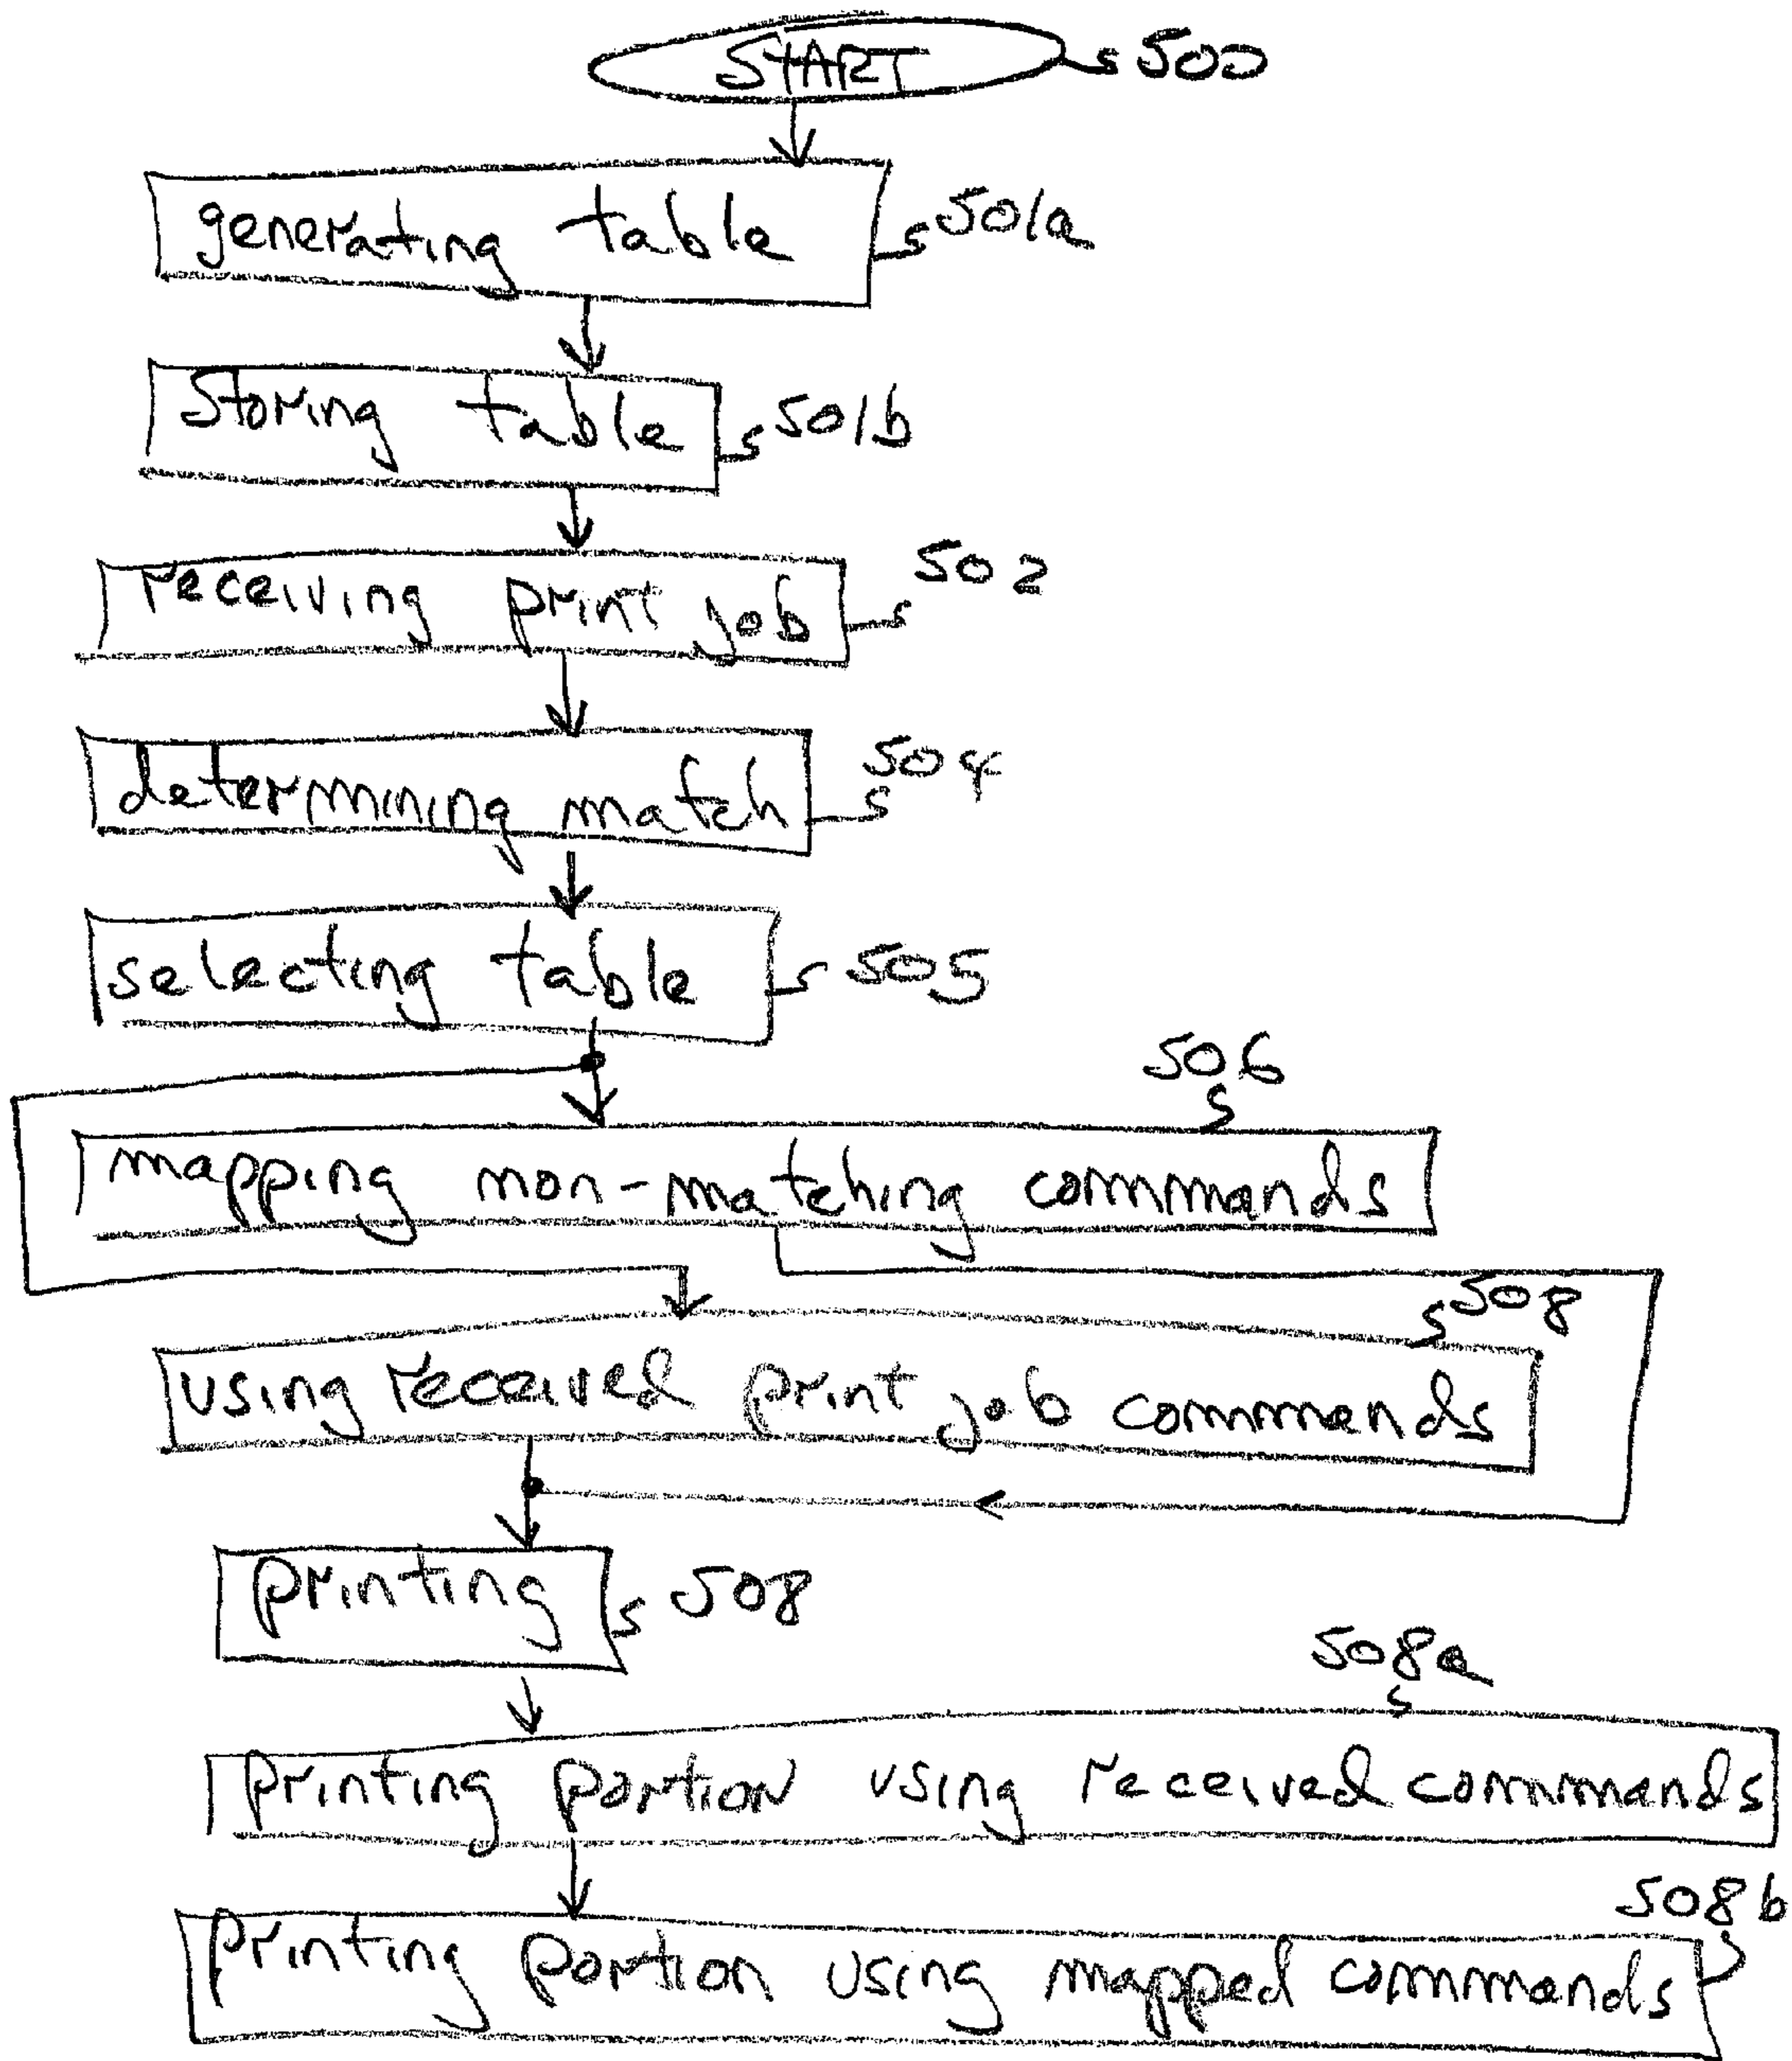 START 500
generating table 501a
Storing table 501b
receiving print job 502
determining match 504
selecting table 505
506
mapping non-matching commands
508
using received print job commands
printing 508
508a
printing portion using received commands
508b
printing portion using mapped commands